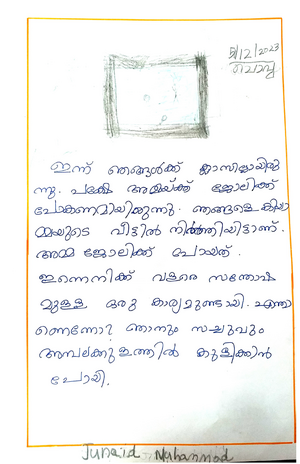 5/12/2023
ചൊവ്വ
ഇന്ന് ഞങ്ങൾക്ക് ക്ലാസില്ലായിരു
ന്നു. പക്ഷേ അമ്മയ്ക്ക് ജോലിക്ക്
പോകണമായിരുന്നു. ഞങ്ങളെ
മ്മയുടെ വീട്ടിൽ നിർത്തിയിട്ടാണ്.
അമ്മ ജോലിക്ക് പോയത്.
ഇന്നെനിക്ക് വളരെ സന്തോഷ
മുള്ള ഒരു കാര്യമുണ്ടായി. എന്താ
ണെന്നോ? ഞാനും സച്ചുവും
അമ്പലക്കുളത്തിൽ കുളിക്കാൻ
പോയി.
Junaid Muhammad